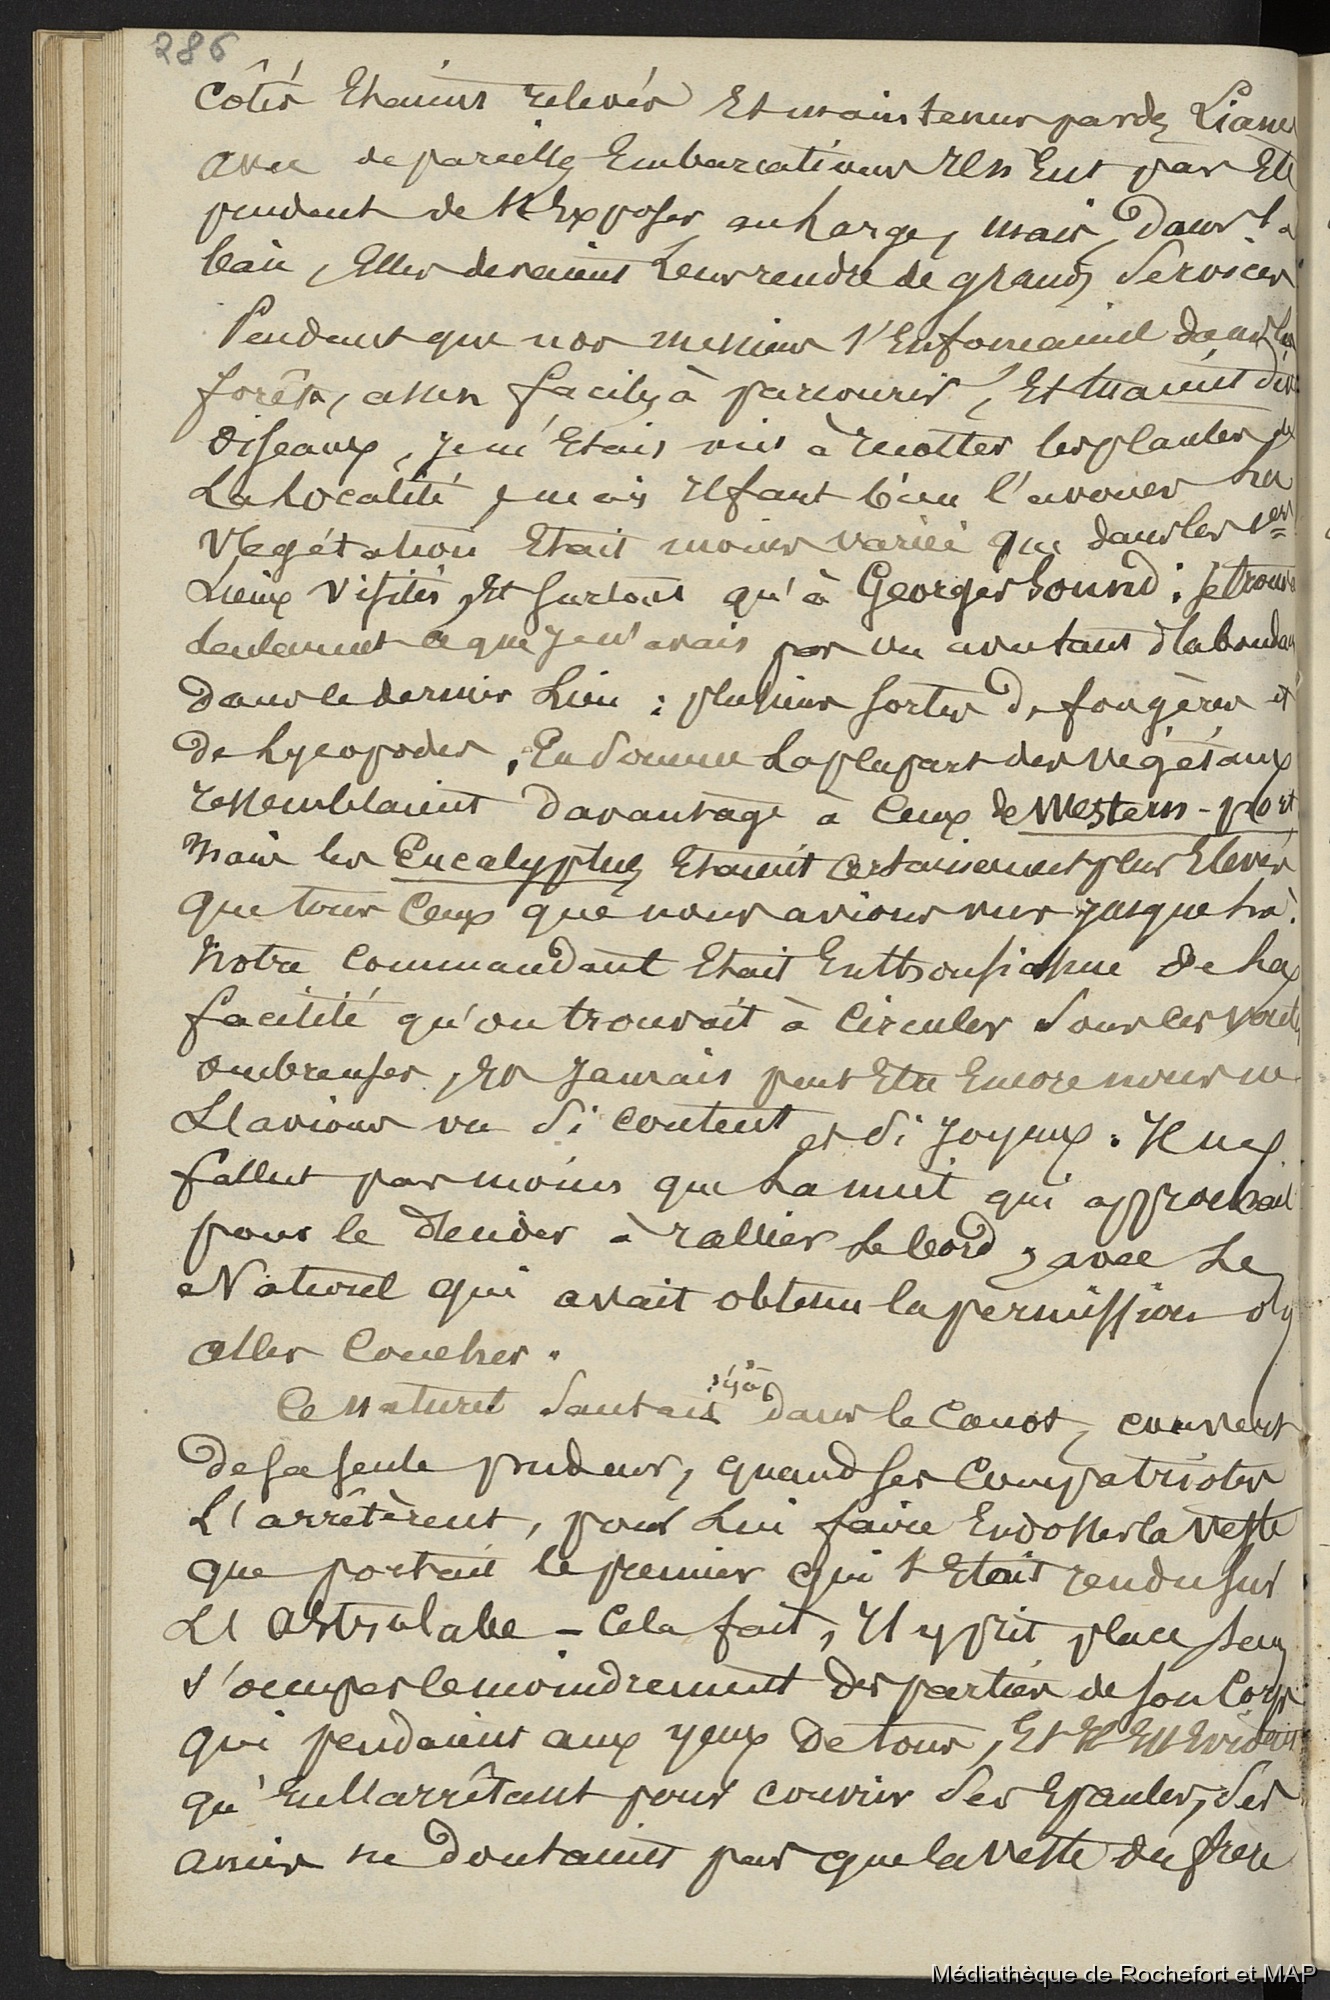 286
côtés Etaient relevés Et maintenus par des Lianes
avec de pareilles Embarcations Il n'Eut pas Eté
prudent de s'Exposer au Large, mais, Dans la
baie, Elles devaient Leur rendre de grands Services
Pendant que nos messieurs s'Enfonçaient dans les
forêts, assez faciles à parcourir, Et tuaient des
oiseaux, je m'Etais mis à récolter les plantes de
La Localité, mais Il faut bien l'avouer La
Vegétation Etait moins variée que dans les 1ers
Lieux visités, Et surtout qu'à Georges Sound; Je trouvai
seulement ce que je n'avais pas vu avec tant d'abondance
Dans le dernier Lieu: plusieurs sortes De fougères et
De Lycopodes, En somme La plupart des vegétaux
ressemblaient Davantage à Ceux de Western-port
Mais les Eucalyptus Etaient certainement plus Elevés
Que tous Ceux que nous avions vus jusque Là.
Notre Commandant Etait Enthousiasme De La
facilité qu'on trouvait à Circuler Sous les voutes
ombreuses, Et Jamais peut Etre Encore nous ne
L'avions vu Si Content et Si Joyeux. Il ne
fallut pas moins que La nuit qui approchait
pour le décider à rallier Le bord, avec Le
Naturel qui avait obtenu la permission d'y
aller Coucher.
Ce naturel Sautait déjà dans le Canot, couvert
De sa seule pudeur, quand ses Compatriotes
L'arrêtèrent, pour Lui faire Endosser la Veste
que portait le premier qui s'Etait rendu sur
L'Astrolabe - Cela fait, Il y prit place sans
s'occuper le moindrement Des parties de son Corps
Qui pendaient aux yeux De tous, Et Il Est Evident
qu'En L'arrêtant pour couvrir Ses Epaules, Ses
amis ne Doutaient pas que la veste du frère
Médiathèque de Rochefort et MAP